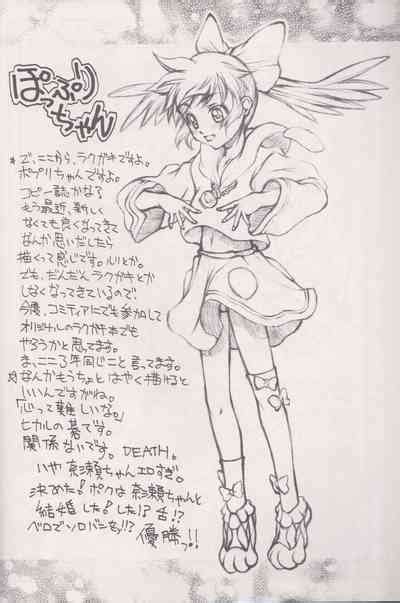 ぽっぷり
っちゃん
*で、ここから、ラクガキですよ。
ポプリちゃんですよ。
コピー誌かな?
もう最近、新しく
なくても良くなってきて
なんか思いだしたら
描くって感じです。リリとか。
でも、だんだんラクガキとか
しなくなってきているので
今度、コミティアにでも参加して
オリジナルのラクガキ本でも
やろうかと思ってます。
ま、ここ2年同じこと言ってます。
なんかもうちょとはやく描けると
いいんですがね。
「心って難しいな。」
ヒカルの碁です。
関係ないです。DEATH。
いや奈瀬ちゃんエロすぎ。
決めた!ボクは奈瀬ちゃんと
結婚した!した!?舌!?
ベロでソロバンをっ!!?
優勝っ!!